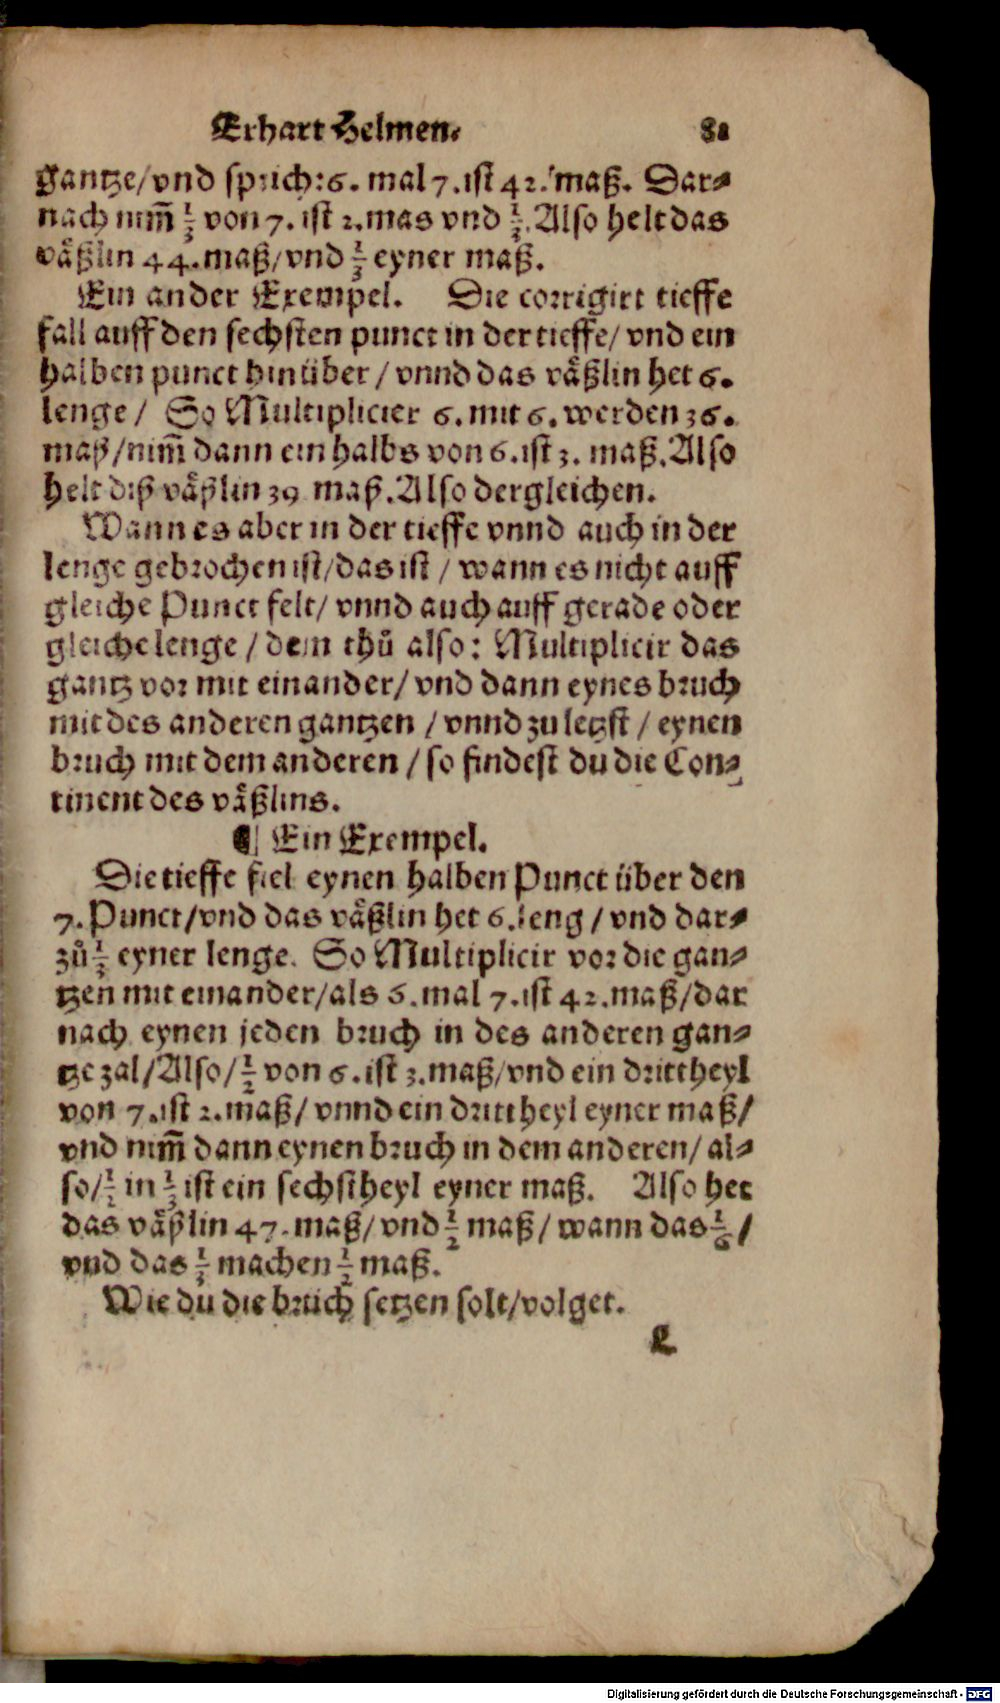 Erhart Helmen. 81
gantze/vnd sprich: 6. mal 7. ist 42. maß. Dar⸗
nach nim̃ 1/3 von 7. ist 2. mas vnd 1/3. Also helt das
väßlin 44. maß/vnd 1/3 eyner maß.
Ein ander Exempel. Die corrigirt tieffe
fall auff den sechsten punct in der tieffe/ vnd ein
halben punct hinüber / vnnd das väßlin het 6.
lenge / So Multiplicier 6. mit 6. werden 36.
maß/nim̃ dann ein halbs von 6. ist 3. maß. Also
helt diß väßlin 39 maß. Also dergleichen.
Wann es aber in der tieffe vnnd auch in der
lenge gebrochen ist/das ist / wann es nicht auff
gleiche Punct felt/ vnnd auch auff gerade oder
gleiche lenge / dem thů also: Multiplicir das
gantz vor mit einander/ vnd dann eynes bruch
mit des anderen gantzen / vnnd zu letzst / eynen
bruch mit dem anderen / so findest du die Con⸗
tinent des väßlins.
¶ Ein Exempel.
Die tieffe fiel eynen halben Punct über den
7. Punct/vnd das väßlin het 6. leng / vnd dar⸗
zů 1/3 eyner lenge. So Multiplicir vor die gan⸗
tzen mit einander/als 6. mal 7. ist 42. maß/dar
nach eynen jeden bruch in des anderen gan⸗
tze zal/Also/ 1/2 von 6. ist 3. maß/vnd ein drittheyl
von 7. ist 2. maß/ vnnd ein drittheyl eyner maß/
vnd nim̃ dann eynen bruch in dem anderen/ al⸗
so/ 1/2 in 1/3 ist ein sechstheyl eyner maß. Also het
das väßlin 47. maß/ vnd 1/2 maß/ wann das 1/6 /
vnd das 1/3 machen 1/2 maß.
Wie du die bruch setzen solt/volget.
L
Digitalisierung gefördert durch die Deutsche Forschungsgemeinschaft - DFG